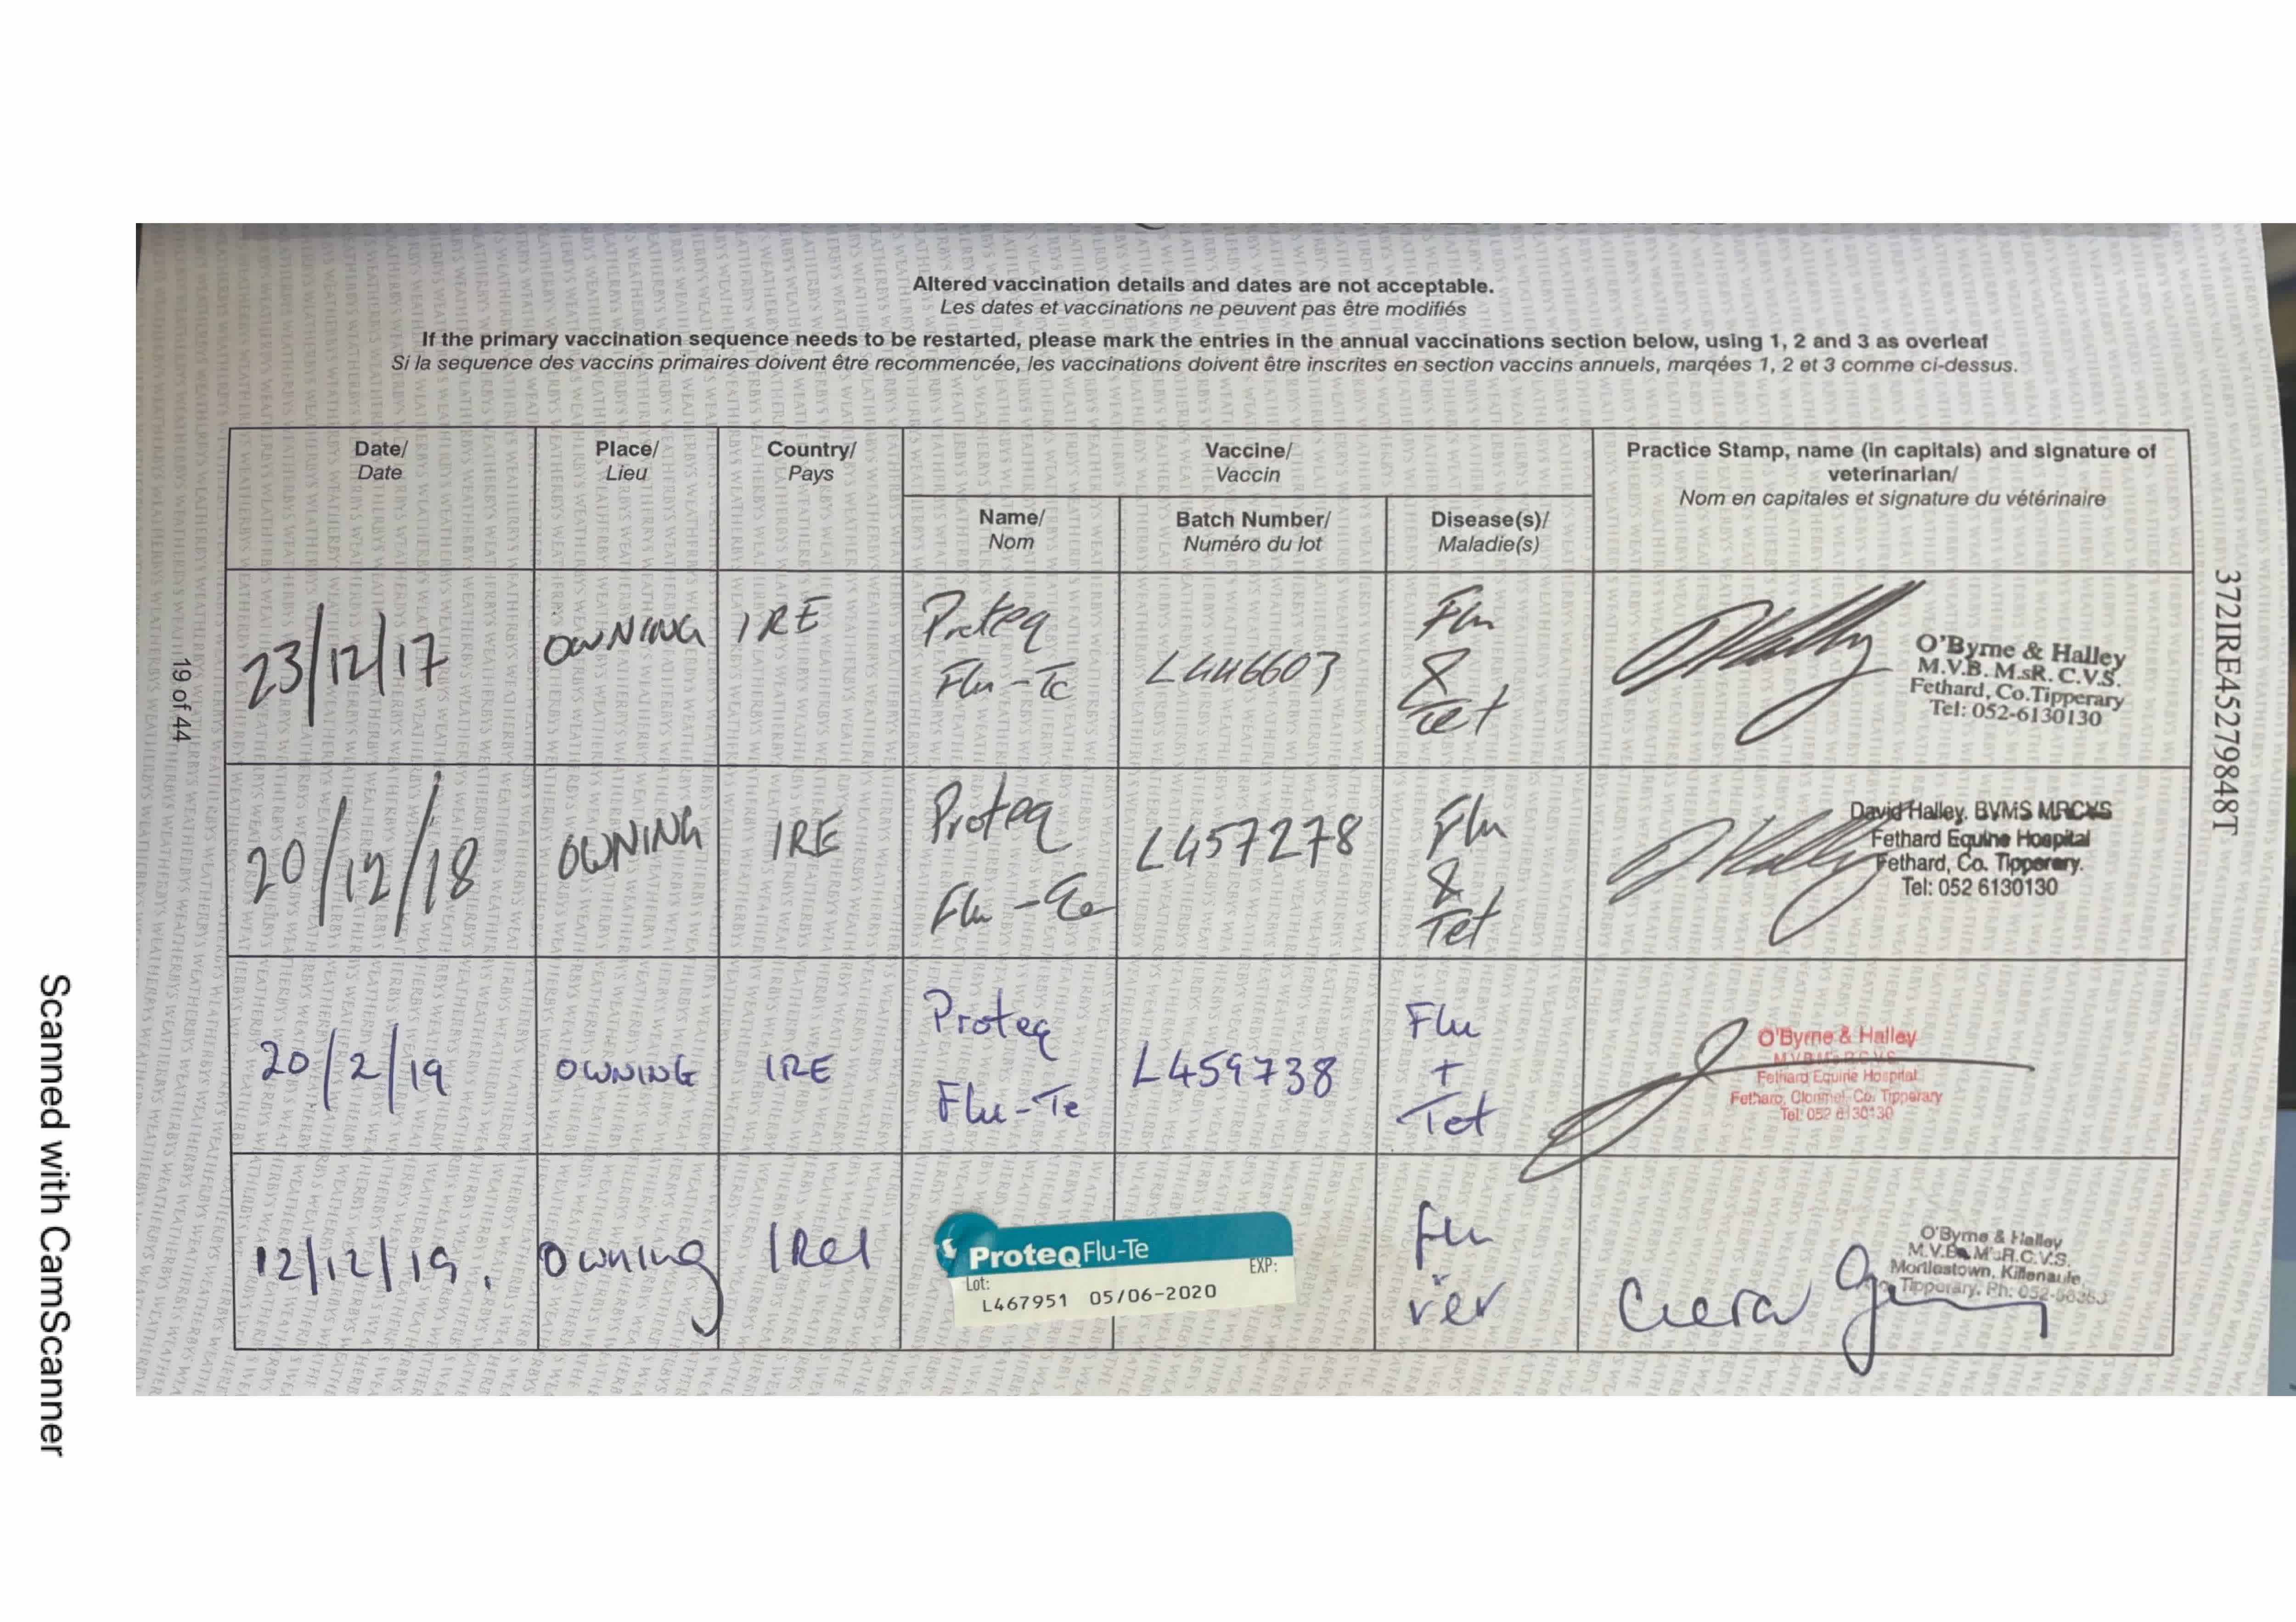 Altered vaccination details and dates are not acceptable.
Les dates et vaccinations ne peuvent pas être modifiés
If the primary vaccination sequence needs to be restarted, please mark the entries in the annual vaccinations section below, using 1, 2 and 3 as overleaf
Si la sequence des vaccins primaires doivent être recommencée, les vaccinations doivent être inscrites en section vaccins annuels, marqées 1, 2 et 3 comme ci-dessus.
Date/
Date
Place/
Lieu
Country/
Pays
Vaccine/
Vaccin
Name/
Nom
Batch Number/
Numéro du lot
Disease(s)/
Maladie(s)
Practice Stamp, name (in capitals) and signature of
veterinarian/
Nom en capitales et signature du vétérinaire
23/12/17
OWNING
IRE
Proteq
Flu-Te
L446603
Flu
&
Tet
O'Byrne & Halley
M.V.B. M.sR. C.V.S.
Fethard, Co.Tipperary
Tel: 052-6130130
20/12/18
OWNING
IRE
Proteq
Flu-Te
L457278
Flu
&
Tet
David Halley. BVMS MRCVS
Fethard Equine Hospital
Fethard, Co. Tipperary.
Tel: 052 6130130
20/2/19
OWNING
IRE
Proteq
Flu-Te
L459738
Flu
+
Tet
O'Byrne & Halley
Fethard Equine Hospital
Fethard, Clonmel Co. Tipperary
Tel: 052 6130130
12/12/19.
Owning
IRel
ProteqFlu-Te
Lot:
EXP:
L467951 05/06-2020
flu
O'Byrne & Halley
Mortlestown, Killenaule,
Tipperary. Ph: 052-
Ciera
19 of 44
372IRE45279848T
Scanned with CamScanner